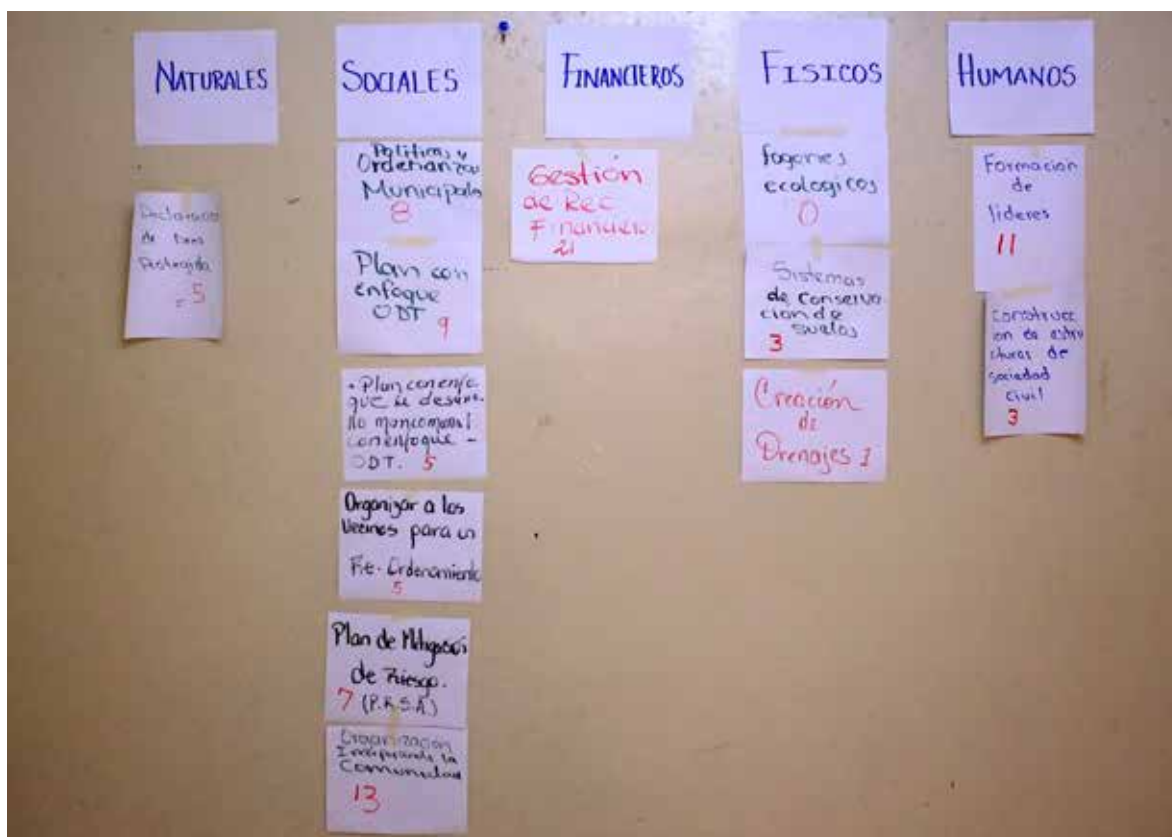 NATURALES
Declaracion
de
Protegida
5
SOCIALES
Politicas y
Ordenanzas
Municipales
8
Plan con
enfoque
ODT 9
• Plan con enfo
que de desarro
llo mancomunal
con enfoque -
ODT. 5
Organizar a los
Vecinos para un
Re-Ordenamiento
5
Plan de Mitigación
de Riesgo.
7 (P.R.S.A.)
Organización
Incorporando la
Comunidad
13
FINANCIEROS
Gestión
de Rec
Financiero
21
FISICOS
fogones
ecologicos
0
Sistemas
de conserva
cion de
suelos
3
Creación
de
Drenajes 1
HUMANOS
Formacion
de
lideres
11
Construcc
ion de estru
cturas de
sociedad
civil
3